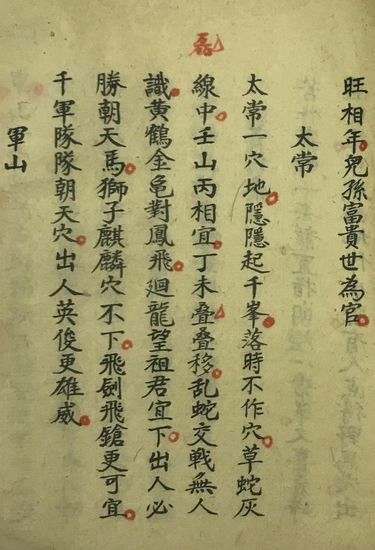 旺相年兒孫富貴世為官
太常
太常一穴地隱隱起千峯落時不作穴草蛇灰
線中壬山丙相宜丁未叠叠移乱蛇交戰無人
識黃鶴金龟對鳳飛廻龍望祖君宜下出人必
勝朝天馬獅子麒麟穴不下飛劍飛鎗更可宜
千軍隊隊朝天穴出人英俊更雄威
軍山
磊